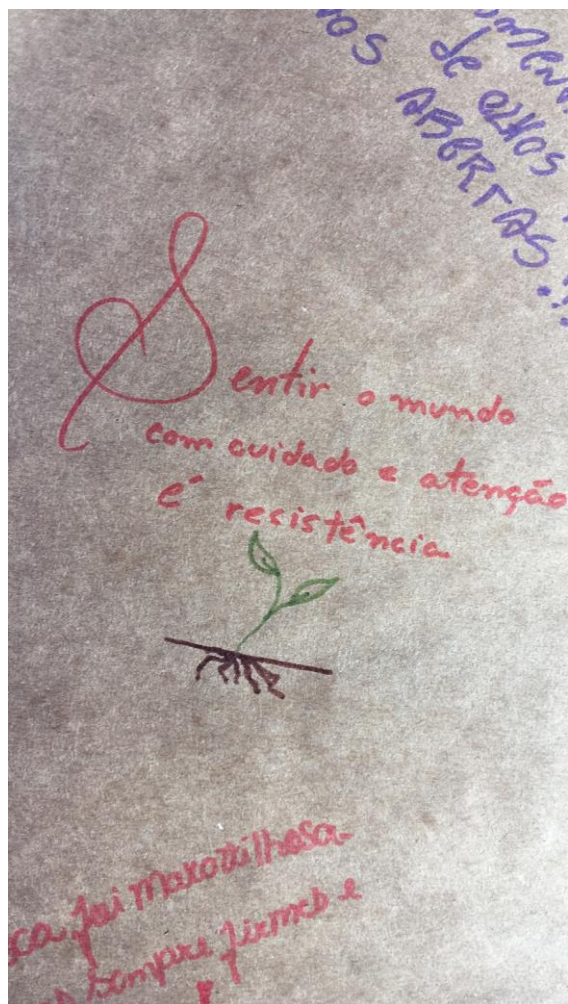 de olhos
ABERTAS!!!
Sentir o mundo
com cuidado e atenção
é recistência
foi maravilhosa
sempre firmes e